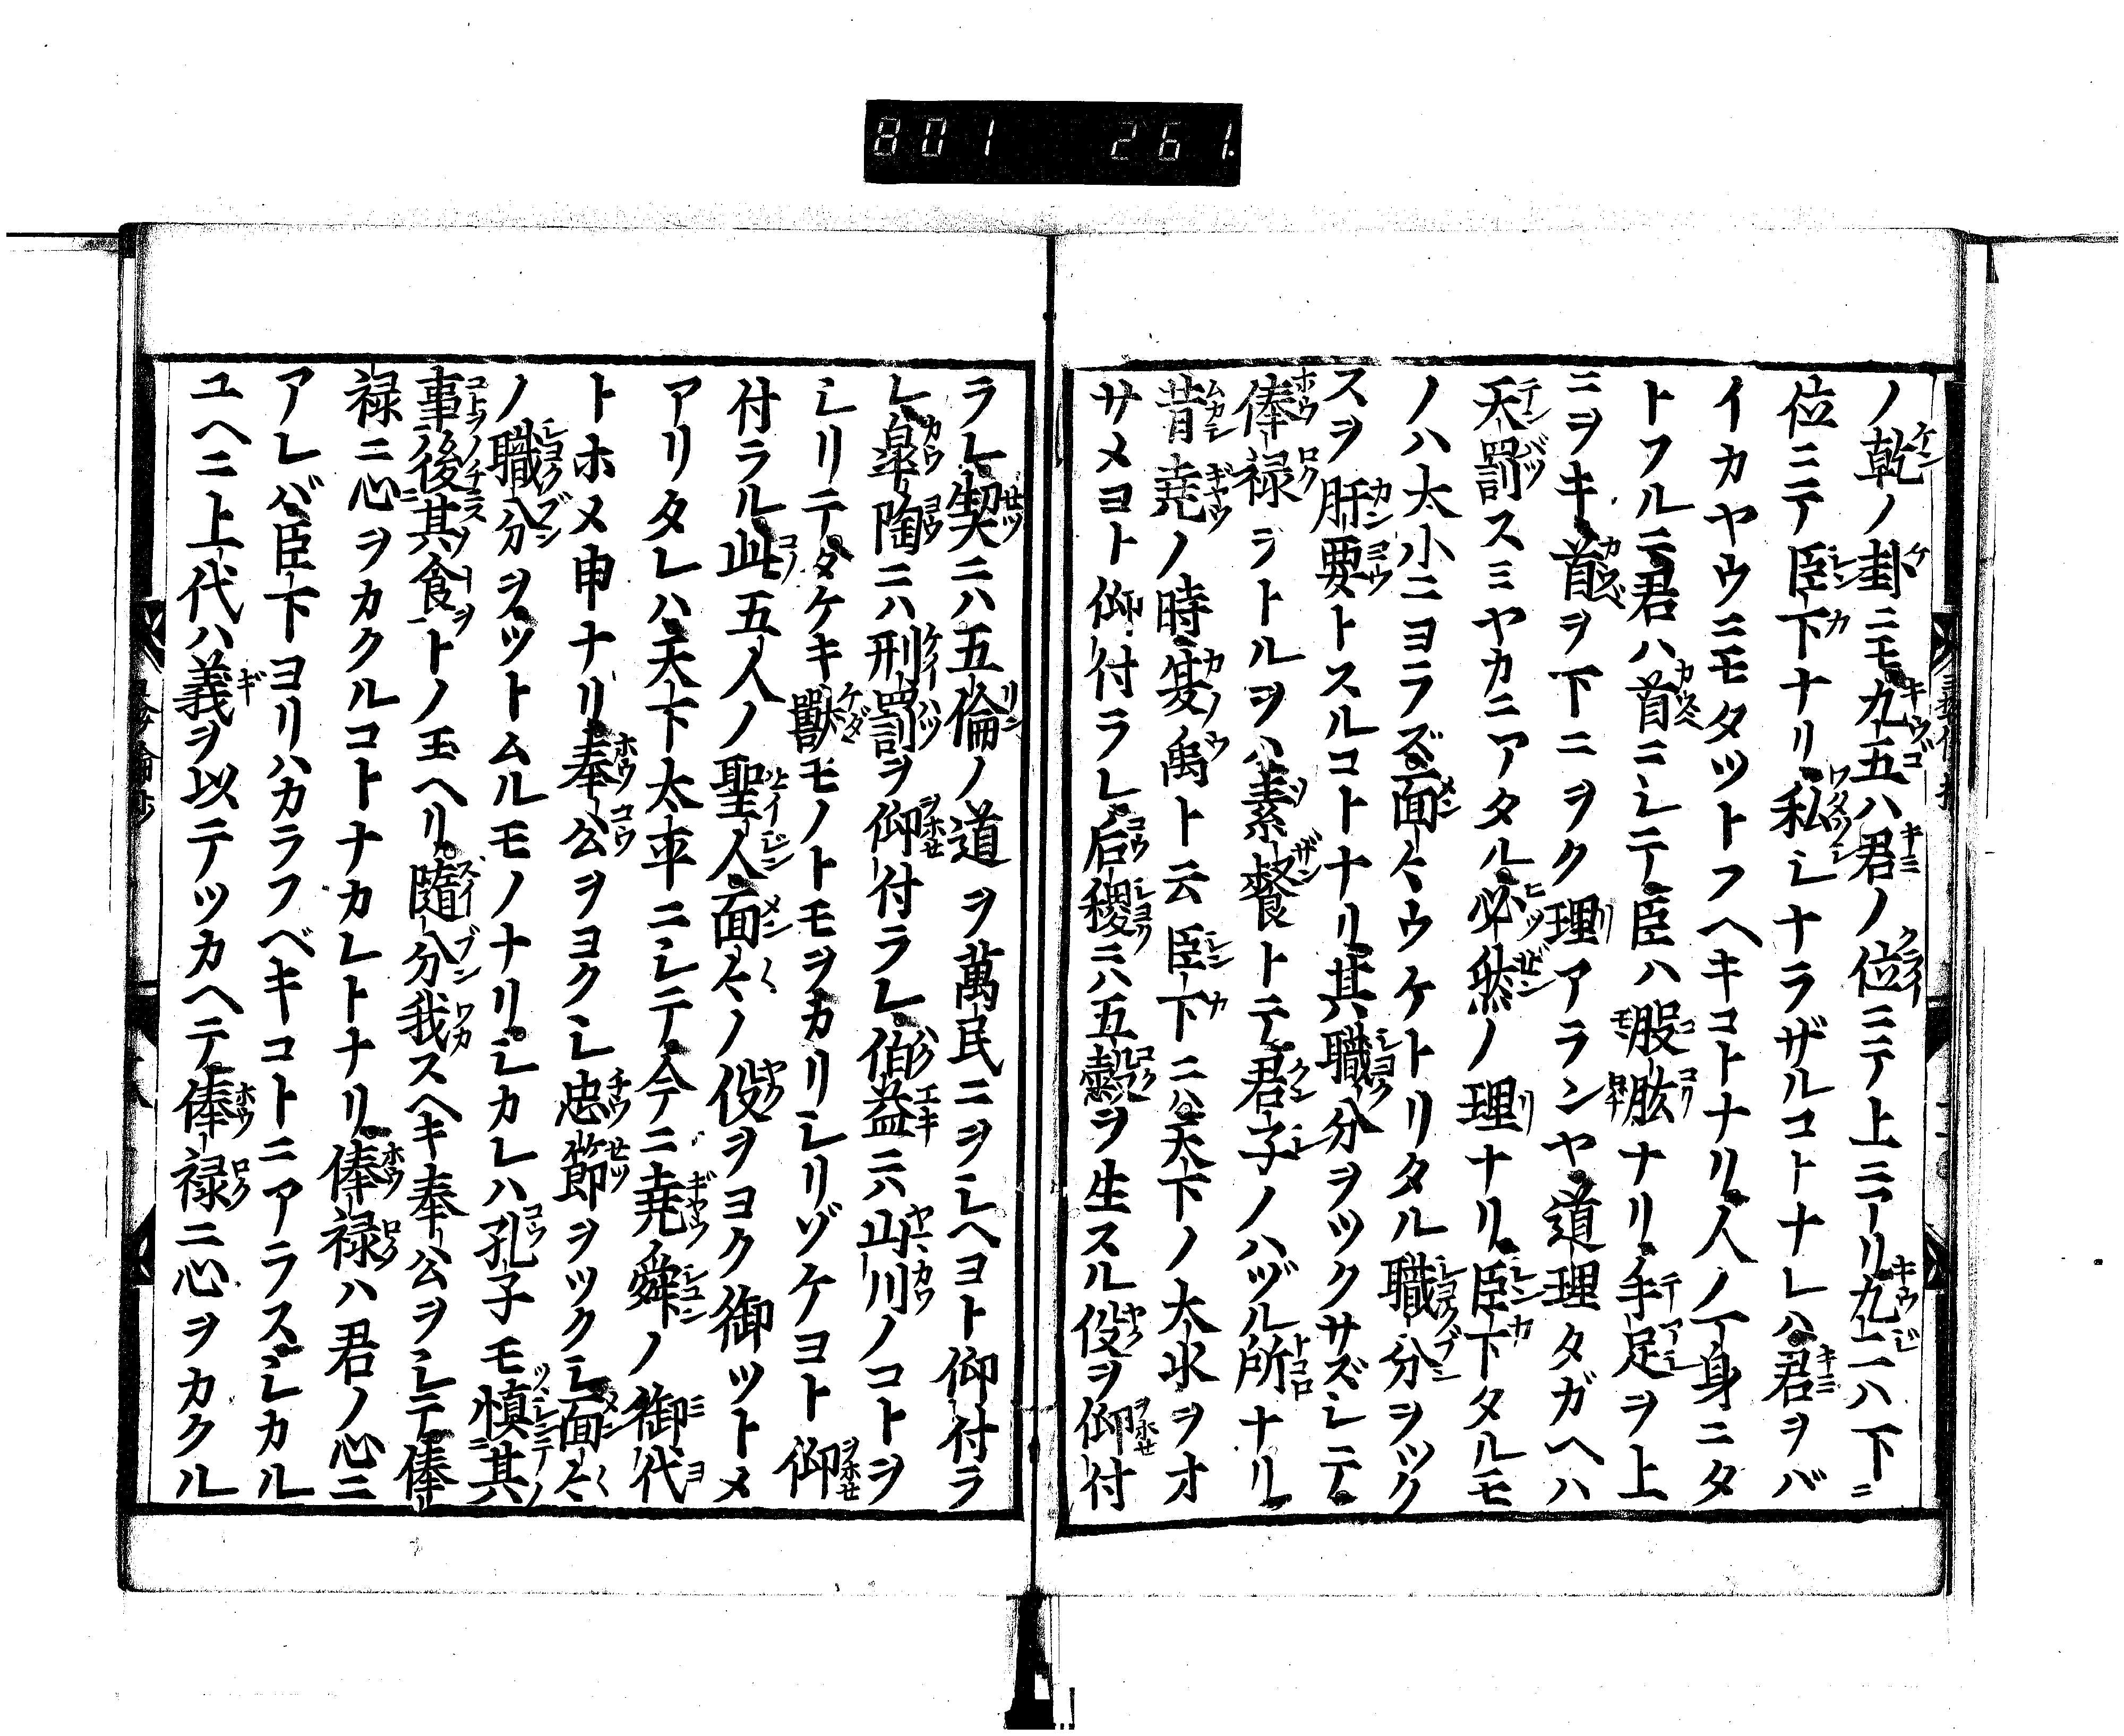 801 261.
ノ乾ノ卦ニモ九五ハ君ノ位ニテ上ニアリ九二ハ下ニ
位ニテ臣下ナリ私シナラザルコトナレハ君ヲバ
イカヤウニモタツトフヘキコトナリ人ノ一身ニタ
トフルニ君ハ首ニシテ臣ハ股肱ナリ手足ヲ上
ニヲキ首ヲ下ニヲク理アランヤ道理タガヘハ
天罰スミヤカニアタル必然ノ理ナリ臣下タルモ
ノハ大小ニヨラズ面々ウケトリタル職分ヲツク
スヲ肝要トスルコトナリ其職分ヲツクサズシテ
俸禄ヲトルヲハ素餐トテ君子ノハヅル所ナリ
昔堯ノ時夏禹ト云臣下ニハ天下ノ大水ヲオ
サメヨト仰付ラレ后稷ニハ五穀ヲ生スル役ヲ仰付
ラレ契ニハ五倫ノ道ヲ萬民ニヲシヘヨト仰付ラ
レ皐陶ニハ刑罰ヲ仰付ラレ伯益ニハ山川ノコトヲ
シリテタケキ獸モノトモヲカリシリゾケヨト仰
付ラル此五人ノ聖人面々ノ役ヲヨク御ツトメ
アリタレハ天下太平ニシテ今ニ堯舜ノ御代
トホメ申ナリ奉公ヲヨクシ忠節ヲツクシ面々
ノ職分ヲツトムルモノナリシカレハ孔子モ慎其
事後其食トノ玉ヘリ隨分我スヘキ奉公ヲシテ俸
禄ニ心ヲカクルコトナカレトナリ俸禄ハ君ノ心ニ
アレバ臣下ヨリハカラフベキコトニアラスシカル
ユヘニ上代ハ義ヲ以テツカヘテ俸禄ニ心ヲカクル